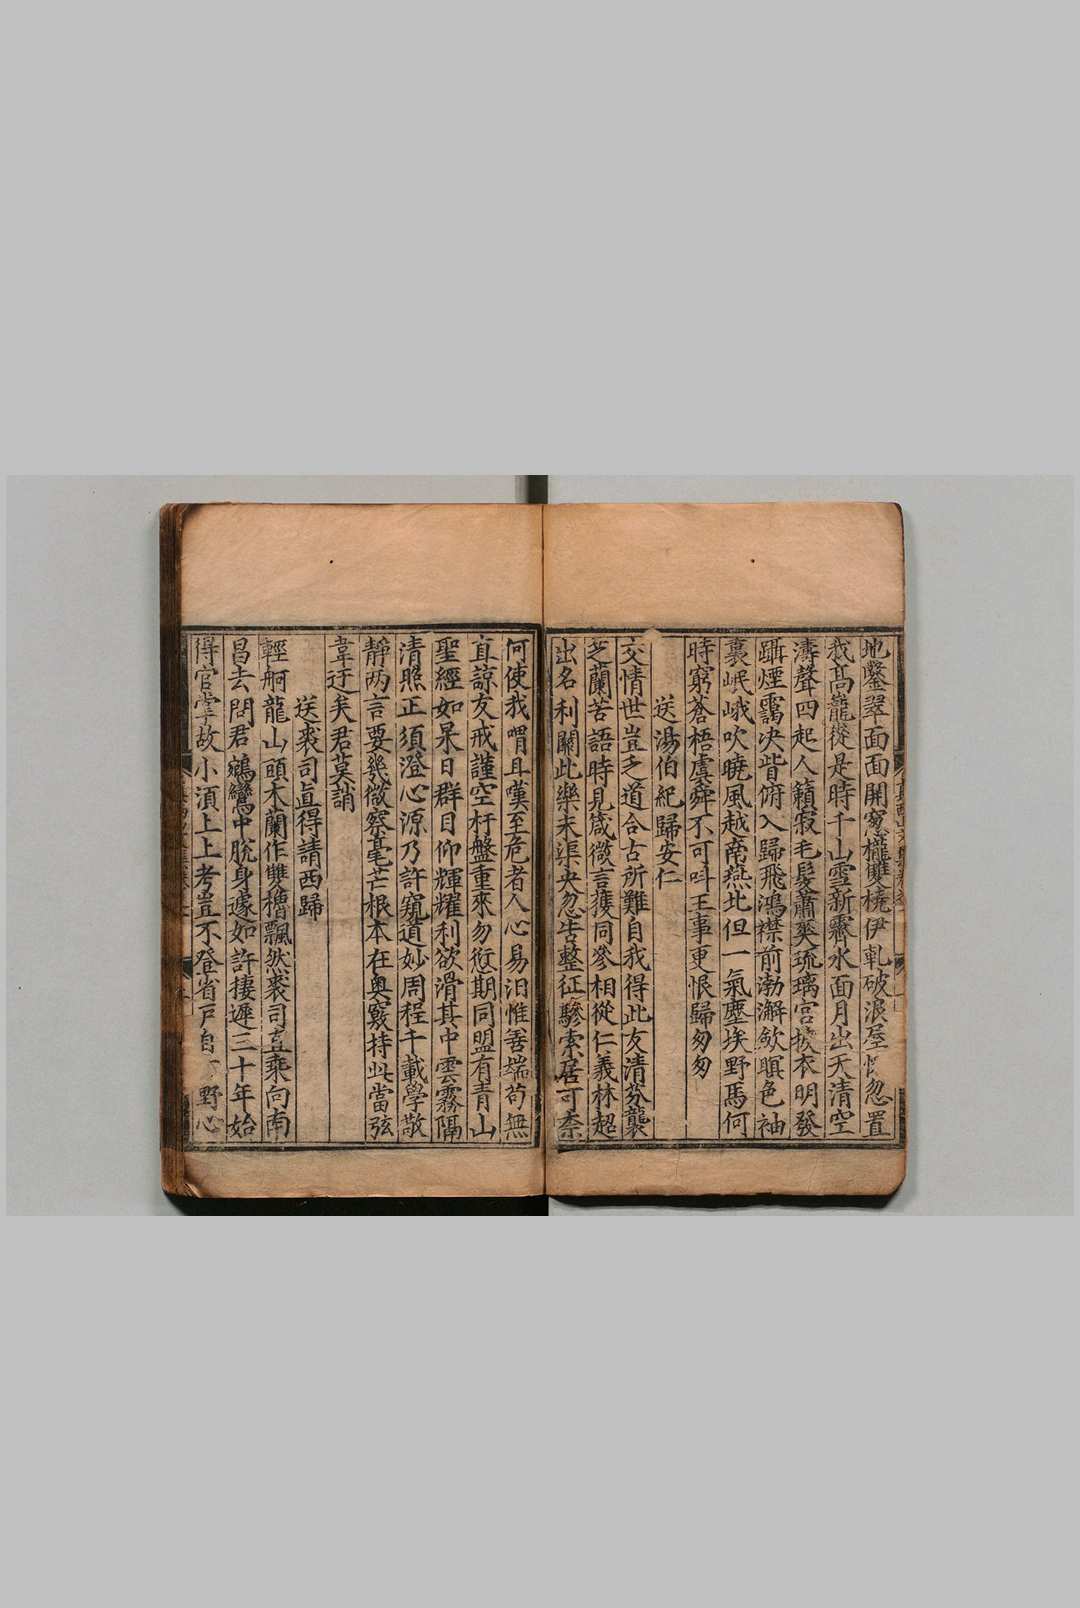 地鑿翠面面開窻櫳雙橈伊軋破浪屋忽置
我高巃嵸是時千山雪新霽水面月出天清空
濤聲四起人籟寂毛髮蕭爽琉璃宮披衣明發
躡煙靄决眥俯入歸飛鴻襟前渤澥歛暝色袖
裏岷峨吹曉風越南燕北但一氣塵埃野馬何
時窮蒼梧虞舜不可呌王事更恨歸匆匆
送湯伯紀歸安仁
交情世豈乏道合古所難自我得此友清芬襲
芝蘭苦語時見箴微言獲同參相從仁義林超
出名利關此樂未渠央忽告整征驂索居可柰
何使我喟且嘆至危者人心易汩惟善端苟無
直諒友戒謹空杅盤重來勿愆期同盟有青山
聖經如杲日群目仰輝耀利欲滑其中雲霧隔
清照正須澄心源乃許窺道妙周程千載學敬
靜两言要幾微察毫芒根本在奥竅持此當弦
韋迂矣君莫誚
送裘司直得請西歸
輕舸龍山頭木蘭作雙櫓飄然裘司直乘向南
昌去問君鵷鸞中脫身遽如許捿遲三十年始
得官掌故小湏上上考豈不登省戶自野心